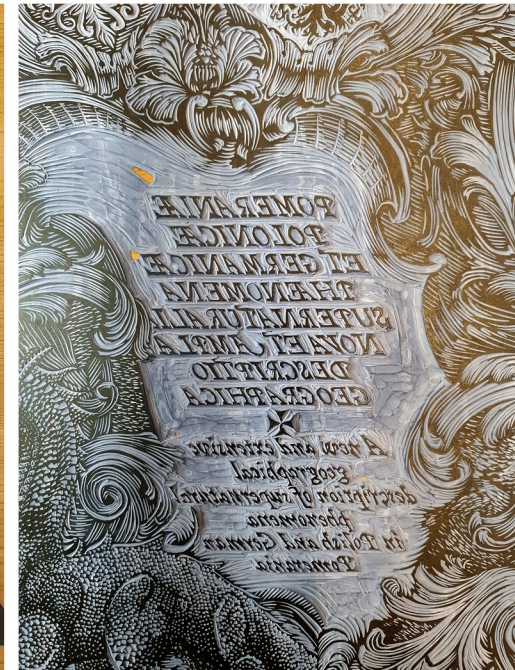 POMERANIÆ
POLONICÆ
ET GERMANICÆ
PHÆNOMENA
SUPERNATURALI
NOVA ET AMPLA
DESCRIPTIO
GEOGRAPHICA
A new and extensive
geographical
description of supernatural
phenomena
in Polish and German
Pomerania